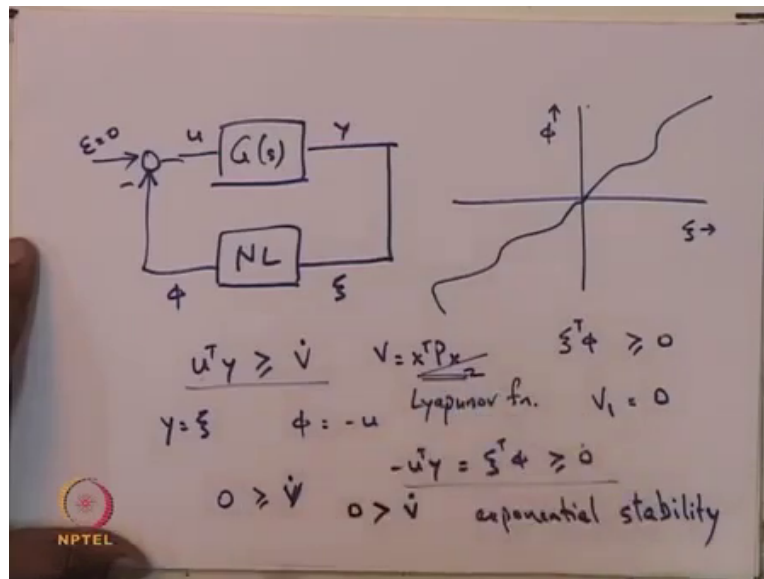 ε=0
u
G(s)
y
NL
φ
ξ
φ↑
ξ→
uᵀy ≥ V̇
V = xᵀPx
2
Lyapunov fn.
ξᵀφ ≥ 0
V₁ = 0
y = ξ
φ = -u
-uᵀy = ξᵀφ ≥ 0
0 ≥ V̇
0 > V̇
exponential stability
NPTEL